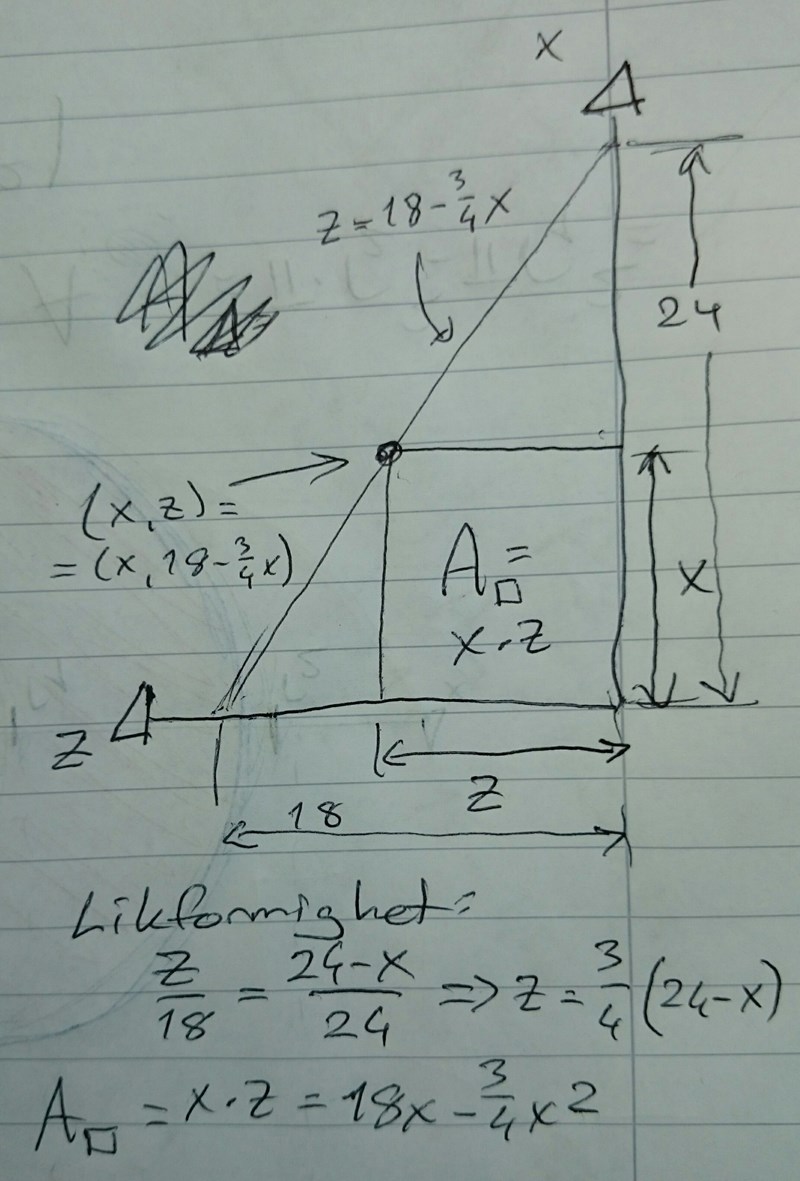 x
z = 18 - 3/4 x
24
(x, z) =
= (x, 18 - 3/4 x)
A□ =
x · z
x
z
z
18
Likformighet:
z/18 = 24-x/24 => z = 3/4 (24-x)
A□ = x · z = 18x - 3/4 x²